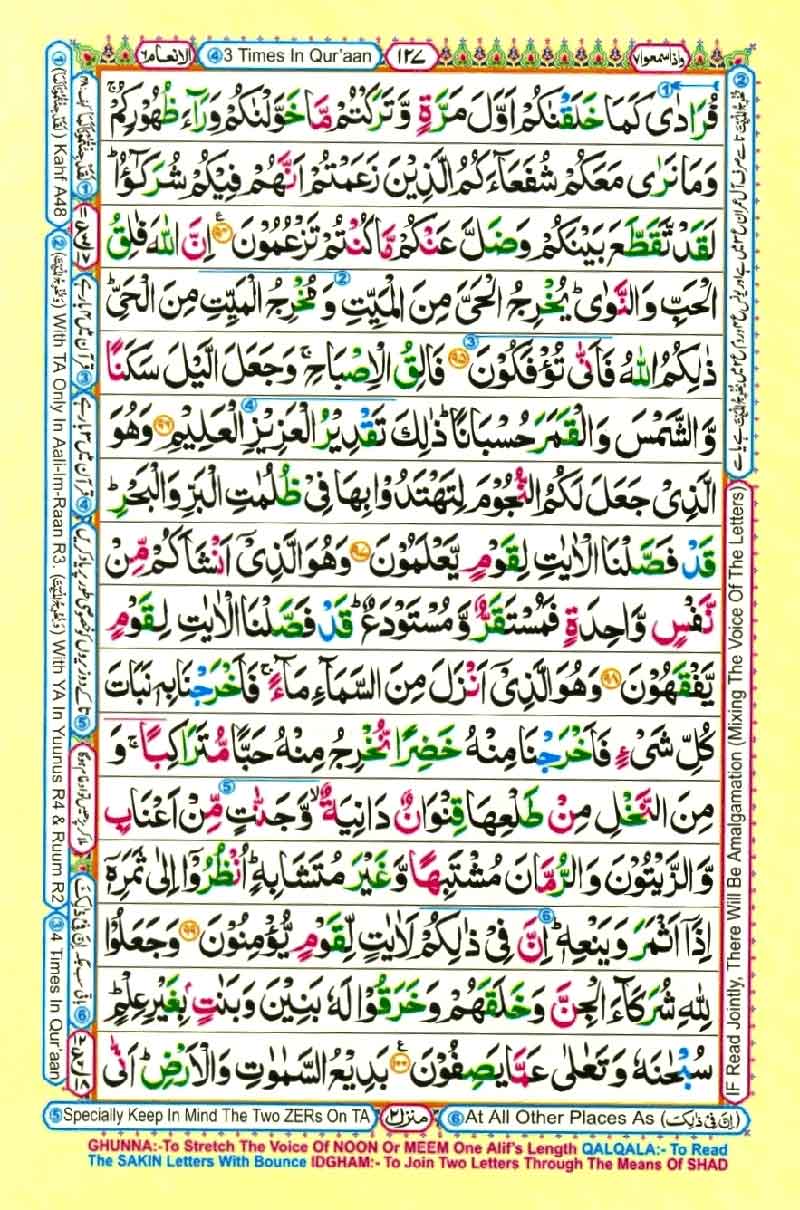 الانعام ٦
④ 3 Times In Qur'aan
١٢٧
واذا سمعوا ٧
فُرَادٰى كَمَا خَلَقْنٰكُمْ اَوَّلَ مَرَّةٍ وَّ تَرَكْتُمْ مَّا خَوَّلْنٰكُمْ وَرَآءَ ظُهُوْرِكُمْ ۚ
وَمَا نَرٰى مَعَكُمْ شُفَعَآءَكُمُ الَّذِيْنَ زَعَمْتُمْ اَنَّهُمْ فِيْكُمْ شُرَكٰٓؤُا ؕ
لَقَدْ تَّقَطَّعَ بَيْنَكُمْ وَضَلَّ عَنْكُمْ مَّا كُنْتُمْ تَزْعُمُوْنَ ﴿٩٤﴾ اِنَّ اللّٰهَ فَالِقُ
الْحَبِّ وَالنَّوٰى ؕ يُخْرِجُ الْحَيَّ مِنَ الْمَيِّتِ وَ مُخْرِجُ الْمَيِّتِ مِنَ الْحَيِّ ؕ
ذٰلِكُمُ اللّٰهُ فَاَنّٰى تُؤْفَكُوْنَ ﴿٩٥﴾ فَالِقُ الْاِصْبَاحِ ۚ وَجَعَلَ الَّيْلَ سَكَنًا
وَّالشَّمْسَ وَالْقَمَرَ حُسْبَانًا ؕ ذٰلِكَ تَقْدِيْرُ الْعَزِيْزِ الْعَلِيْمِ ﴿٩٦﴾ وَهُوَ
الَّذِيْ جَعَلَ لَكُمُ النُّجُوْمَ لِتَهْتَدُوْا بِهَا فِيْ ظُلُمٰتِ الْبَرِّ وَالْبَحْرِ ؕ
قَدْ فَصَّلْنَا الْاٰيٰتِ لِقَوْمٍ يَّعْلَمُوْنَ ﴿٩٧﴾ وَهُوَ الَّذِيْٓ اَنْشَاَكُمْ مِّنْ
نَّفْسٍ وَّاحِدَةٍ فَمُسْتَقَرٌّ وَّ مُسْتَوْدَعٌ ؕ قَدْ فَصَّلْنَا الْاٰيٰتِ لِقَوْمٍ
يَّفْقَهُوْنَ ﴿٩٨﴾ وَهُوَ الَّذِيْٓ اَنْزَلَ مِنَ السَّمَآءِ مَآءً ۚ فَاَخْرَجْنَا بِهٖ نَبَاتَ
كُلِّ شَيْءٍ فَاَخْرَجْنَا مِنْهُ خَضِرًا نُّخْرِجُ مِنْهُ حَبًّا مُّتَرَاكِبًا ۚ وَ
مِنَ النَّخْلِ مِنْ طَلْعِهَا قِنْوَانٌ دَانِيَةٌ وَّ جَنّٰتٍ مِّنْ اَعْنَابٍ
وَّالزَّيْتُوْنَ وَالرُّمَّانَ مُشْتَبِهًا وَّغَيْرَ مُتَشَابِهٍ ؕ اُنْظُرُوْٓا اِلٰى ثَمَرِهٖٓ
اِذَآ اَثْمَرَ وَيَنْعِهٖ ؕ اِنَّ فِيْ ذٰلِكُمْ لَاٰيٰتٍ لِّقَوْمٍ يُّؤْمِنُوْنَ ﴿٩٩﴾ وَجَعَلُوْا
لِلّٰهِ شُرَكَآءَ الْجِنَّ وَخَلَقَهُمْ وَخَرَقُوْا لَهٗ بَنِيْنَ وَبَنٰتٍۭ بِغَيْرِ عِلْمٍ ؕ
سُبْحٰنَهٗ وَ تَعٰلٰى عَمَّا يَصِفُوْنَ ﴿١٠٠﴾ بَدِيْعُ السَّمٰوٰتِ وَالْاَرْضِ ؕ اَنّٰى
① (لَقَدْ جِئْتُمُوْنَا) Kahf A48
② (وَتُخْرِجُ الْمَيِّتَ) With TA Only In Aali-Im-Raan R3. (وَيُخْرِجُ الْمَيِّتَ) With YA In Yuunus R4 & Ruum R2
③ 4 Times In Qur'aan
IF Read Jointly, There Will Be Amalgamation (Mixing The Voice Of The Letters)
⑤ Specially Keep In Mind The Two ZERs On TA
منزل ٢
⑥ At All Other Places As (اِنَّ فِيْ ذٰلِكَ)
GHUNNA:-To Stretch The Voice Of NOON Or MEEM One Alif's Length QALQALA:- To Read
The SAKIN Letters With Bounce IDGHAM:- To Join Two Letters Through The Means Of SHAD